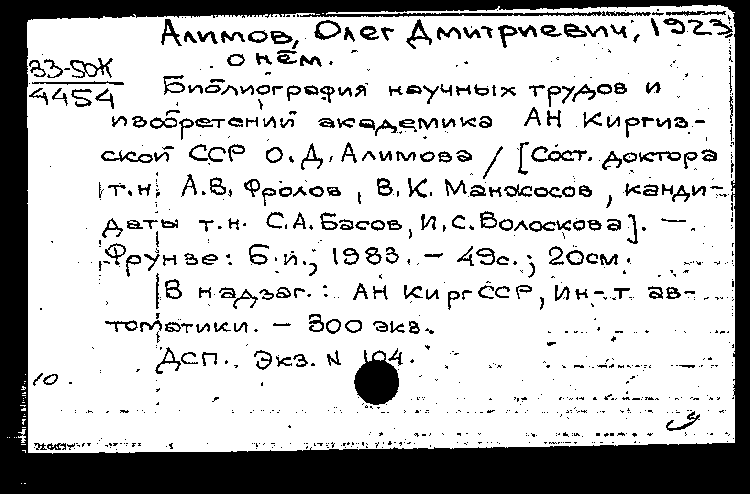 Алимов, Олег Дмитриевич, 1923
о нём.
83-50Ж
4454
Библиография научных трудов и
изобретений академика АН Киргиз-
ской ССР О.Д. Алимова / [Сост. доктора
т.н. А.В. Фролов, В.К. Манжосов, канди-
даты т.н. С.А. Басов, И.С. Волоскова]. —
Фрунзе: Б.и., 1983. – 49с.; 20см.
В надзаг.: АН КиргССР, Ин-т ав-
томатики. – 300 экз.
ДСП. Экз. N 104.
10.